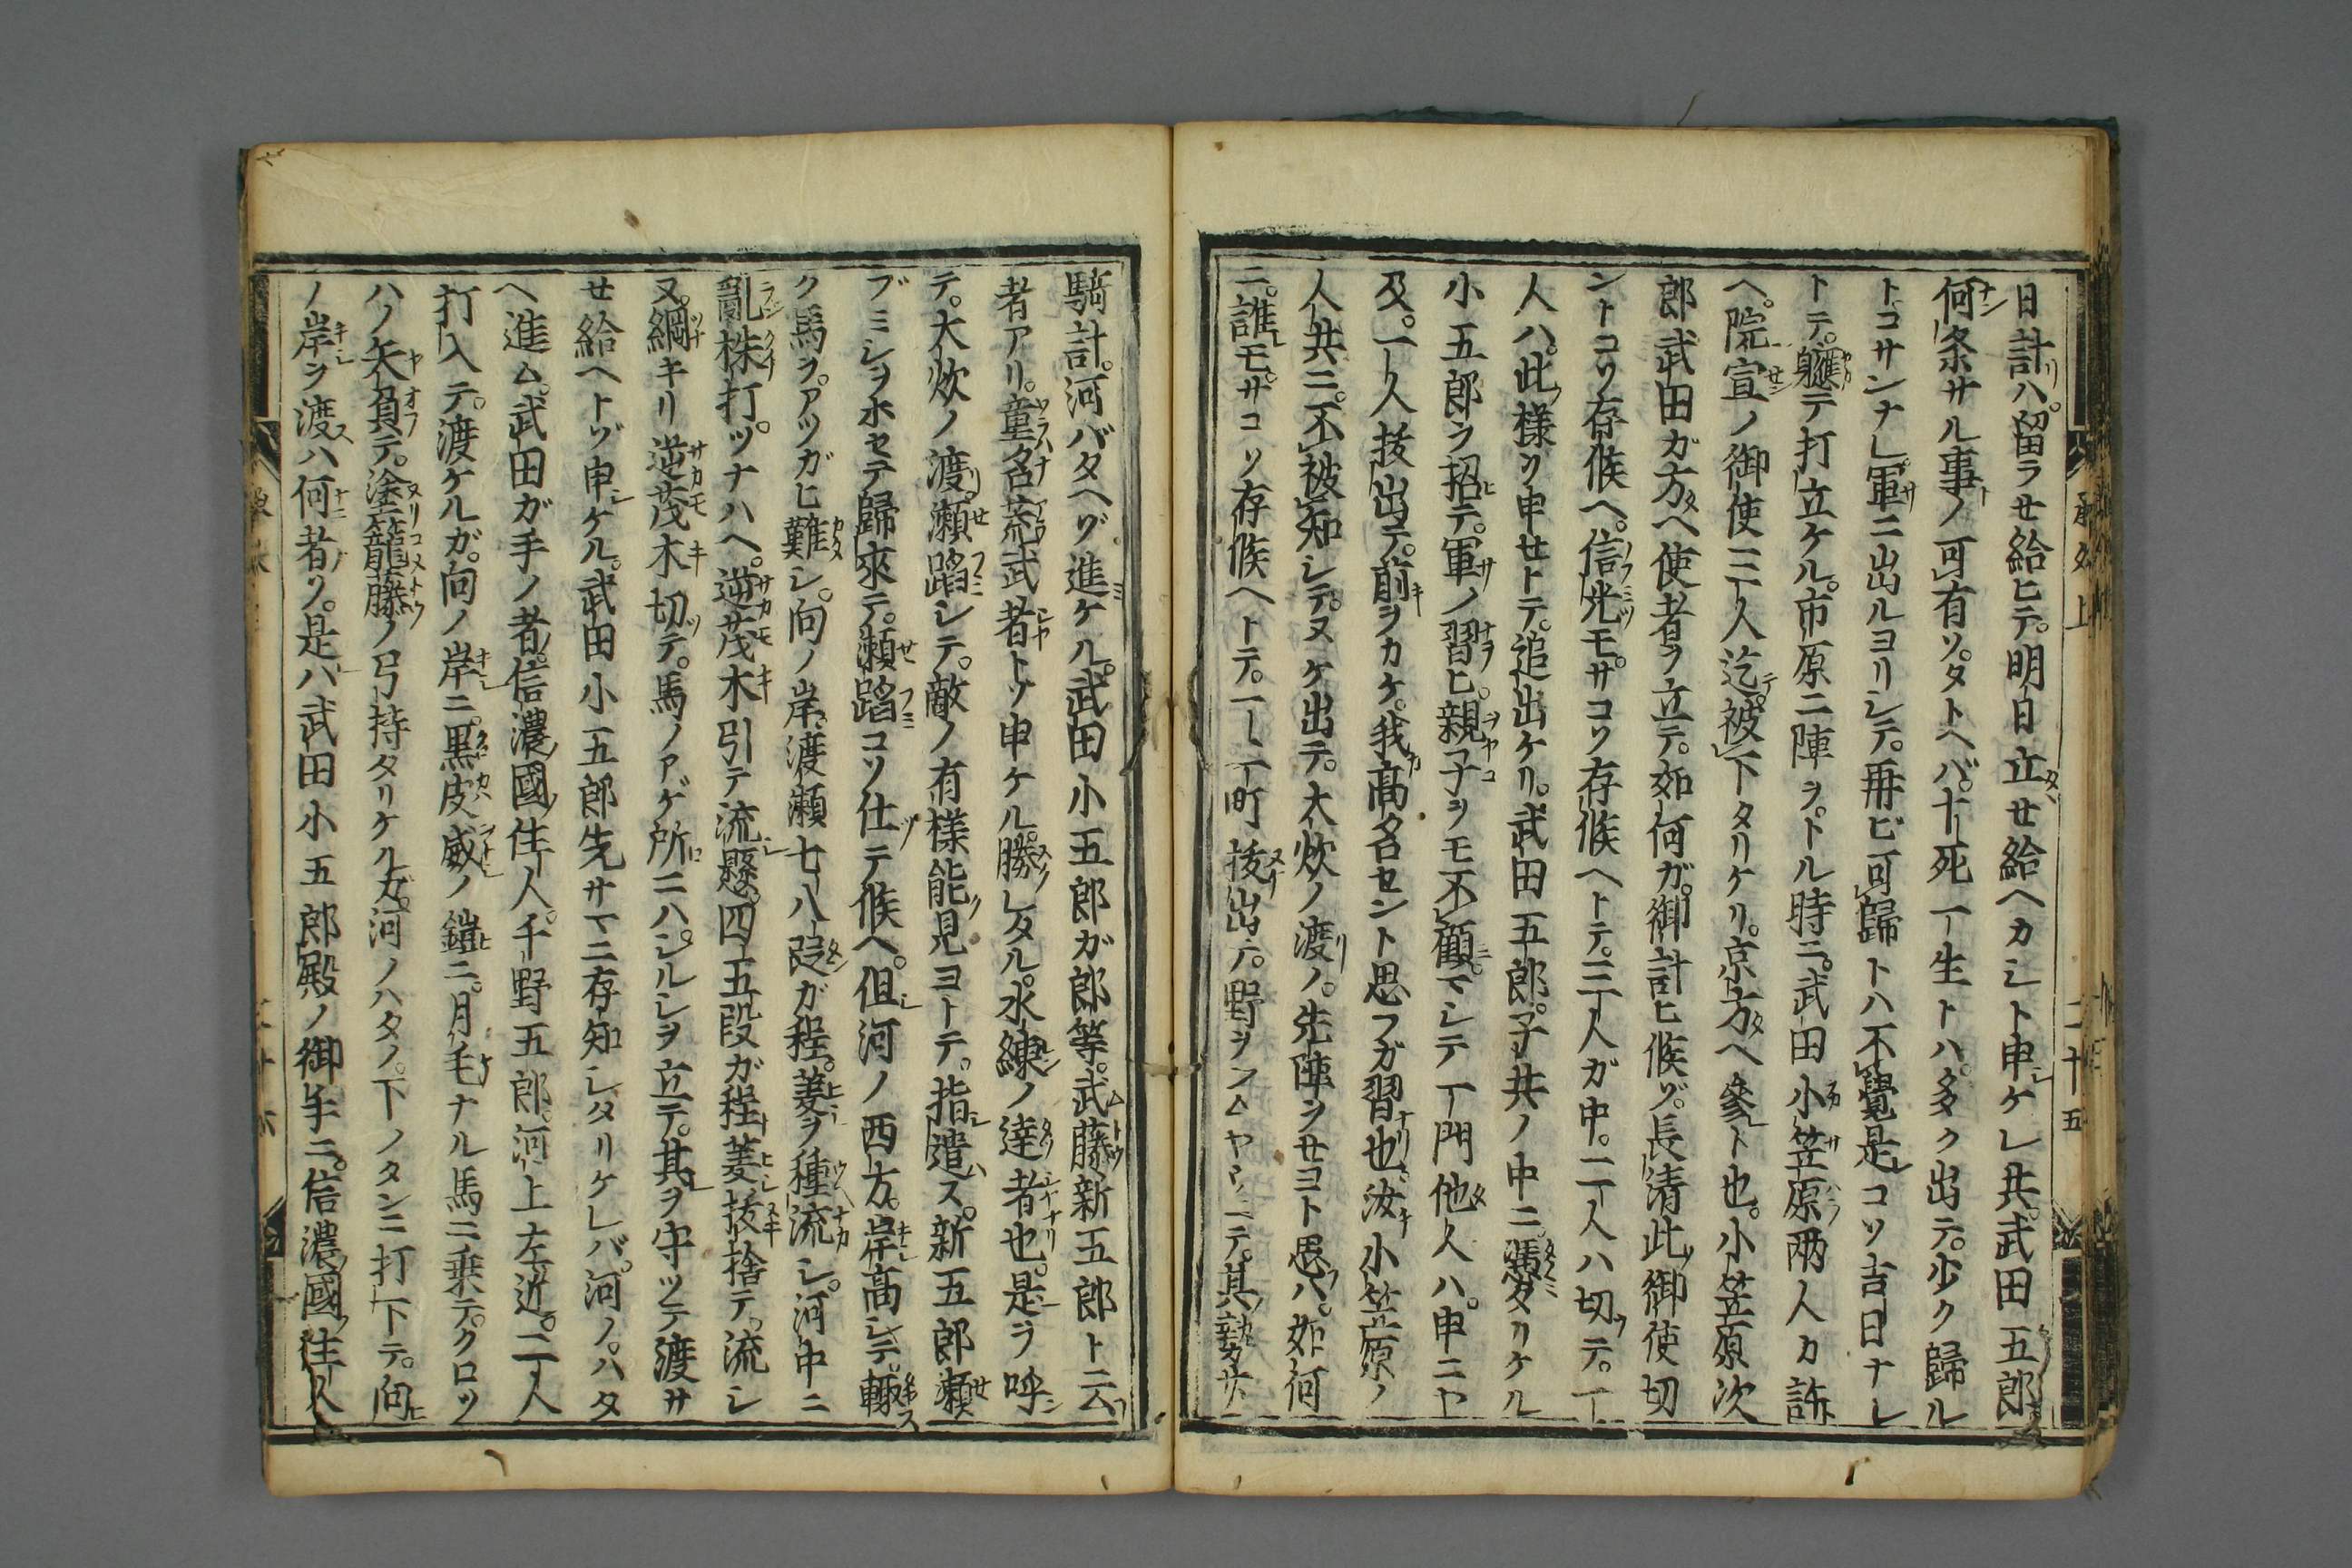 日計ハ。留ラせ給ヒテ。明日立せ給ヘカシト申ケレ共。武田五郎
何条サル事ノ可有ソ。タトヘバ。十死一生トハ。多ク出テ。少ク歸ル
トコサンナレ。軍ニ出ルヨリシテ。再ビ可歸トハ不覺。是コソ吉日ナレ
トテ。軈テ打立ケル。市原ニ陣ヲ。トル時ニ。武田小笠原兩人カ許
ヘ。院宣ノ御使三人迄。被下タリケリ。京方ヘ參ト也。小笠原次
郎武田ガ方ヘ使者ヲ立テ。如何ガ。御計ヒ候ゾ。長清此御使切
ントコソ存候ヘ。信光モ。サコソ存候ヘトテ。三人ガ中。二人ハ切テ。一
人ハ。此様ヲ申せトテ。追出ケリ。武田五郎。子共ノ中ニ。憑タリケル
小五郎ヲ招テ。軍ノ習ヒ。親子ヲモ不顧。マシテ一門他人ハ。申ニヤ
及。一人抜出テ。前ヲカケ。我高名セント思フガ習也。汝小笠原ノ
人共ニ。不被知シテ。ヌケ出テ。大炊ノ渡ノ。先陣ヲせヨト思ハ。如何
ニ。誰モ。サコソ存候ヘトテ。一二町抜出テ。野ヲフムヤウニテ。其勢廿
騎計。河バタヘゾ進ケル。武田小五郎ガ郎等。武藤新五郎ト云
者アリ。童名荒武者トソ申ケル。勝レタル。水練ノ達者也。是ヲ呼
テ。大炊ノ渡瀬蹈シテ。敵ノ有様能見ヨトテ。指遣ス。新五郎瀬
ブミシヲホセテ歸來テ。瀬蹈コソ仕テ候ヘ。但河ノ西方。岸高シテ。輙
ク馬ヲ。アツガヒ難シ。向ノ岸。渡瀬七八段ガ程。菱ヲ種流シ。河中ニ
亂株打。ツナハヘ。逆茂木引テ流懸。四五段ガ程菱抜捨テ。流シ
ヌ。綱キリ逆茂木切テ。馬ノアゲ所ニハ。シルシヲ立テ。其ヲ守ツテ渡サ
せ給ヘトゾ申ケル。武田小五郎先サマニ存知シタリケレバ。河ノ。ハタ
ヘ進ム。武田ガ手ノ者。信濃國住人。千野五郎。河上左近。二人
打入テ。渡ケルガ。向ノ岸ニ。黒皮威ノ鎧ニ。月毛ナル馬ニ乗テ。クロツ
ハノ矢負テ。塗籠藤ノ弓持タリケルガ。河ノハタノ。下ノタンニ打下テ。向
ノ岸ヲ渡ハ何者ソ。是ハ武田小五郎殿ノ御手ニ。信濃國住人
承久上
二十五